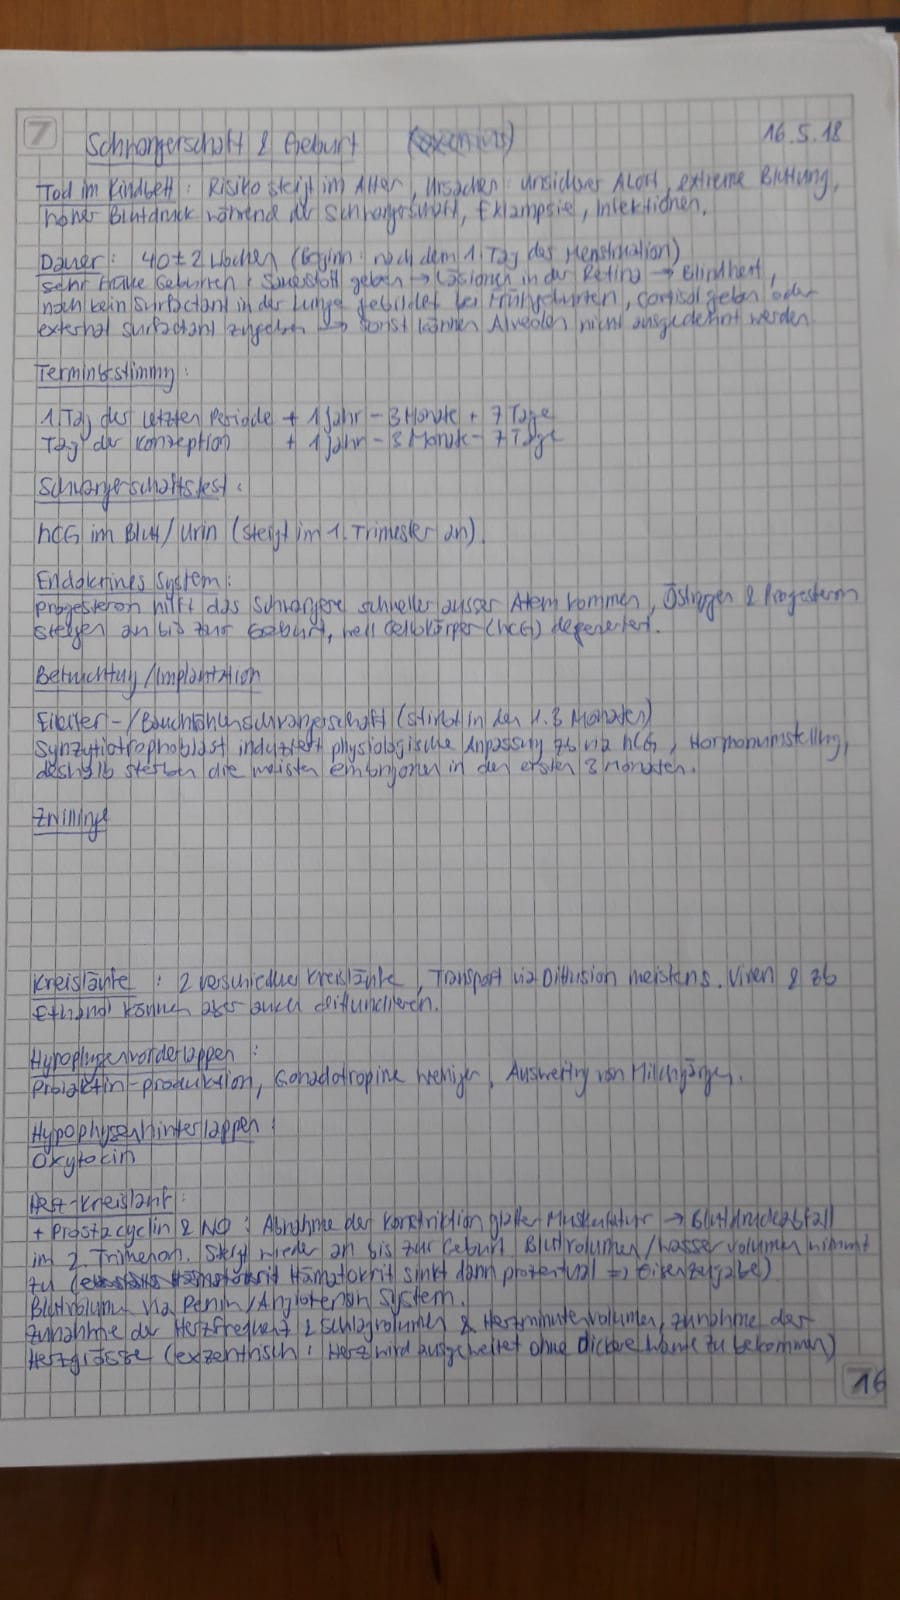 7
Schwangerschaft & Geburt
16.5.18
Tod im Kindbett: Risiko steigt im Alter, Ursachen: unsicherer Abort, extreme Blutung,
hoher Blutdruck während der Schwangerschaft, Eklampsie, Infektionen.
Dauer: 40±2 Wochen (Beginn: nach dem 1. Tag des Menstruation)
sehr frühe Geburten: Sauerstoff geben → Läsionen in der Retina → Blindheit,
noch kein Surfactant in der Lunge gebildet bei Frühgeburten, cortisol geben oder
external surfactant zugeben → sonst können Alveolen nicht ausgedehnt werden
Terminbestimmg:
1. Tag der letzten Periode + 1 Jahr - 3 Monate + 7 Tage
Tag der Konzeption + 1 Jahr - 3 Monate - 7 Tage
Schwangerschaftstest:
hCG im Blut/Urin (steigt im 1. Trimester an).
Endokrines System:
Progesteron hilft das Schwangere schneller ausser Atem kommen, Östrogen & Progesteron
steigen an bis zur Geburt, weil Gelbkörper (hCG) degeneriert.
Befruchtung/Implantation
Eileiter-/Bauchhöhlenschwangerschaft (stirbt in den 1. 3 Monaten)
Synzytiotrophoblast induziert physiologische Anpassung zb via hCG, Hormonumstellung,
deshalb sterben die meisten embryonen in den ersten 3 Monaten.
Zwillinge
Kreisläufe: 2 verschiedene Kreisläufe, Transport via Diffusion meistens. Viren & zb
Ethanol können aber auch diffundieren.
Hypophysenvorderlappen:
Prolaktin-produktion, Gonadotropine weniger, Ausweitng von Milchgängen.
Hypophysenhinterlappen:
Oxytocin
+ Prostacyclin & NO: Abnahme der Konstriktion glatter Muskulatur → Blutdruckabfall
im 2. Trimenon. Steigt wieder an bis zur Geburt Blutvolumen/Wasservolumen nimmt
zu (Hämatokrit sinkt dann prozentual => Eisenzugabe)
Blutvolumen via Renin/Angiotensin System.
Zunahme der Herzfrequenz & Schlagvolumen & Herzminutenvolumen, Zunahme der
Herzgrösse (exzenthisch: Herz wird ausgeweitet ohne dickere Wände zu bekommen)
16